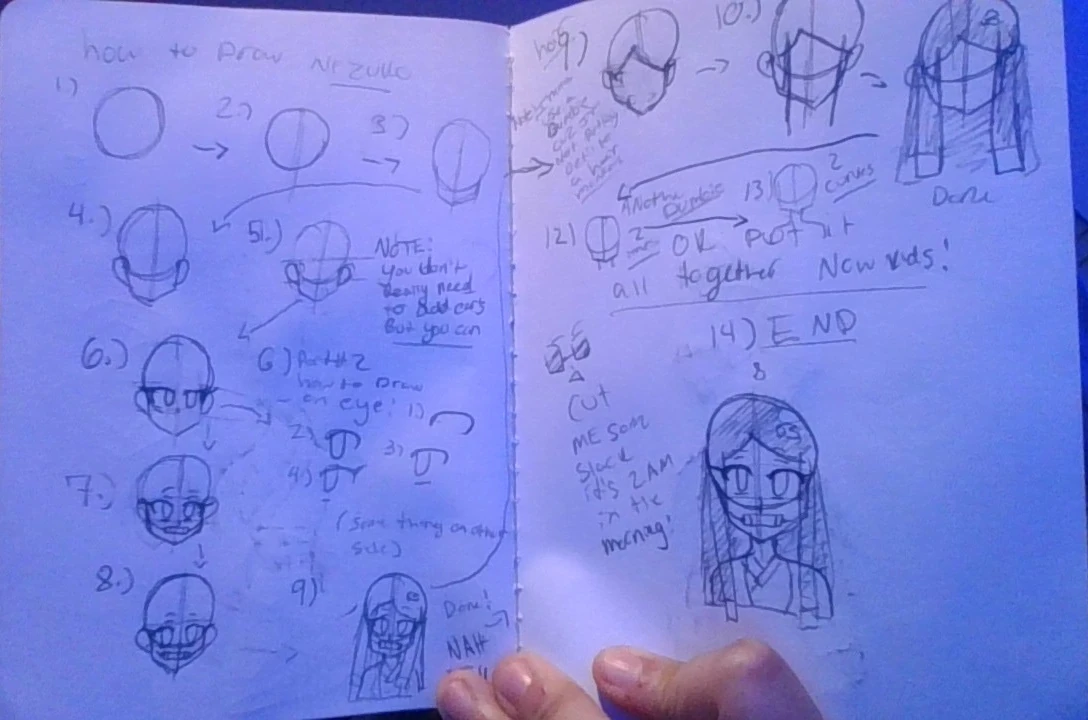 how to Draw Nezuko
1)
2.)
3)
4.)
5.)
NOTE:
you don't
Really need
to add ears
But you can
6.)
6) Part #2
how to Draw
an eye! 1)
2)
3)
4)
7.)
(Same thing on other
side)
8.)
9)
Done!
NAH
9)
use a
Dumbie
cuz I'm
Not Putting
a hair
10.)
Done
12)
Another
Dumbie
13)
2
curves
2
OK Put it
all together Now kids!
14) END
CUT
ME SOM
Slack
it's 2 AM
in the
morning!